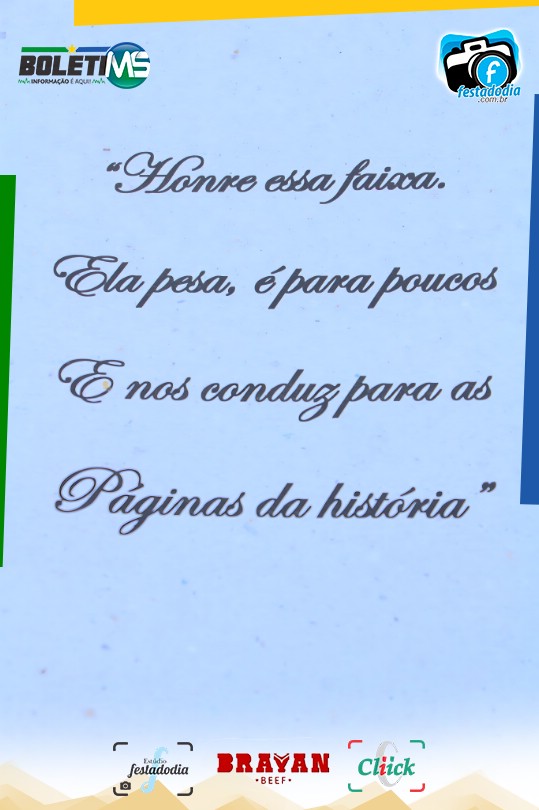 BOLETIMS
INFORMAÇÃO É AQUI!
f
festadodia
.com.br
“Honre essa faixa.
Ela pesa, é para poucos
E nos conduz para as
Páginas da história”
Estúdio
festadodia
BRAYAN
·BEEF·
Cliick